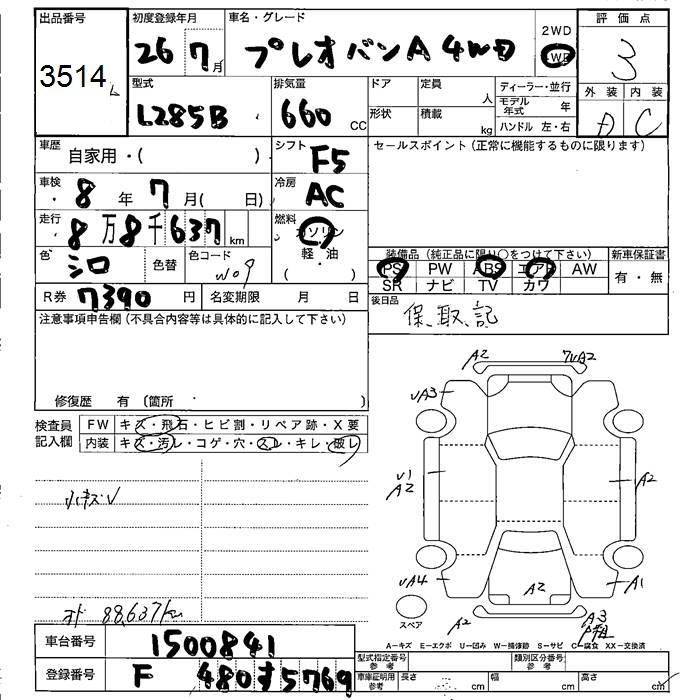 出品番号 初度登録年月 車名・グレード 2WD 評価点
3514 26 7月 プレオバンA 4WD 4WD 3
型式 排気量 ドア 定員 人 ディーラー・並行 外装 内装
L285B 660 CC 形状 積載 kg モデル年式 年 A C
ハンドル 左・右
車歴 自家用・( ) シフト F5 セールスポイント(正常に機能するものに限ります)
車検 8年 7月( 日) 冷房 AC
走行 8万8千637km 燃料 ガソリン
色 シロ 色替 色コード W09 軽・油 ( )
装備品(純正品に限り○をつけて下さい) 新車保証書
PS PW ABS エアB AW 有・無
SR ナビ TV カワ
R券 7390円 名変期限 月 日 後日品
保、取、記
注意事項申告欄(不具合内容等は具体的に記入して下さい)
修復歴 有 (箇所 )
検査員記入欄 FW キズ・飛石・ヒビ割・リペア跡・X要
内装 キズ・汚レ・コゲ・穴・スレ・キレ・破レ
A2 7UA2
UA3
U1
A2 A2
小キズU
UA4 A2 A1
88,637km
スペア A2 A3
A-キズ E-エクボ U-凹み W-補修跡 S-サビ C-腐食 XX-交換済
車台番号 1500841
型式指定番号 参考 類別区分番号 参考
登録番号 F 480す5769
車庫証明用 参考 長さ cm 幅 cm 高さ cm